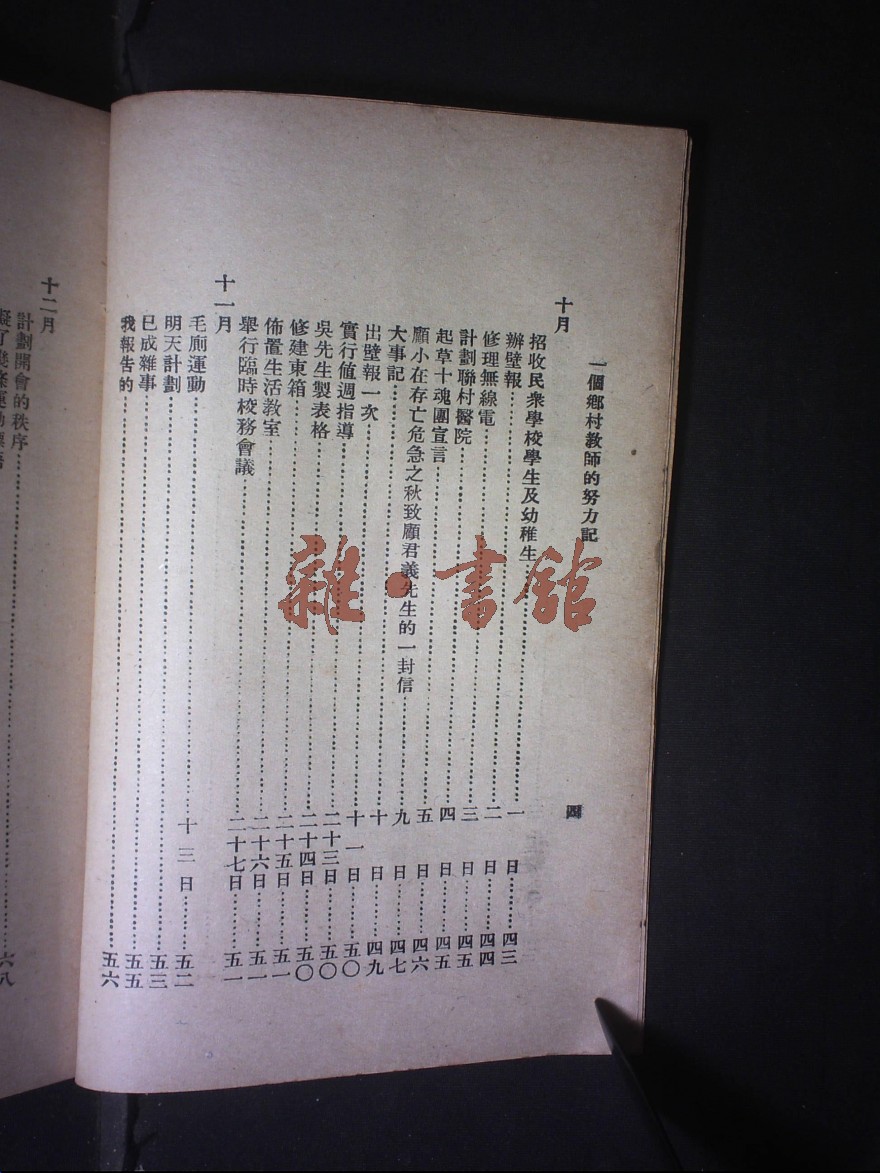 一個鄉村教師的努力記
四
十月
招收民衆學校學生及幼稚生……一日……四三
辦壁報……二日……四四
修理無線電……三日……四五
計劃聯村醫院……四日……四五
起草十魂團宣言……五日……四六
顧小在存亡危急之秋致顧君義先生的一封信……九日……四七
大事記……十日……四九
出壁報一次……十一日……五〇
實行值週指導……二十三日……五〇
吳先生製表格……二十四日……五〇
修建東箱……二十五日……五一
佈置生活教室……二十六日……五一
舉行臨時校務會議……二十七日……五一
十一月
毛廁運動……十三日……五二
明天計劃……五三
已成雜事……五五
我報告的……五六
十二月
計劃開會的秩序……六八
雜·書館